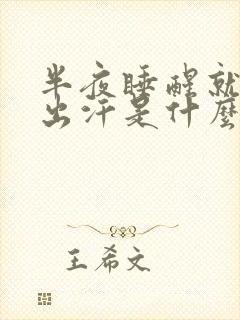 半夜睡醒就
出汗是什麼
王希文